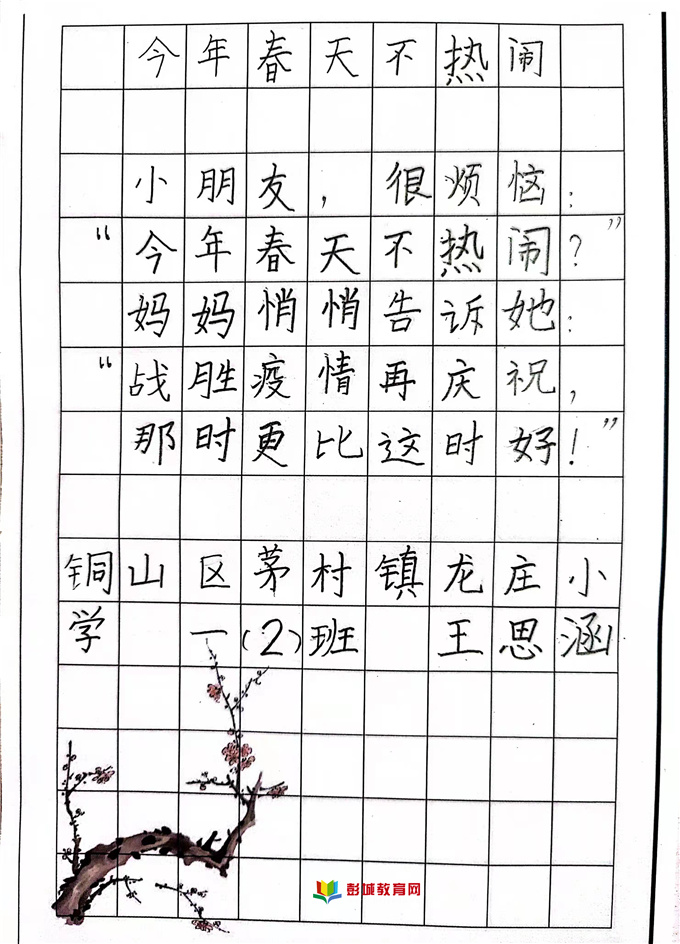 今年春天不热闹
小朋友，很烦恼：
“今年春天不热闹？”
妈妈悄悄告诉她：
“战胜疫情再庆祝，
那时更比这时好！”
铜山区茅村镇龙庄小
学 一(2)班 王思涵
彭城教育网